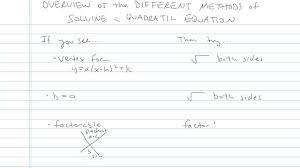 OVERVIEW of the DIFFERENT METHODS of
SOLVING a QUADRATIC EQUATION
If you see... Then try
• vertex form √ both sides
y=a(x-h)²+k
• b=0 √ both sides
• factorable factor!
product
a·c
b